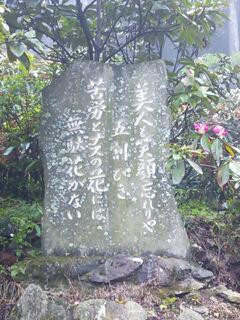 美人も笑顔忘れりや
五割びき
苦労とナスの花には、
無駄花がない